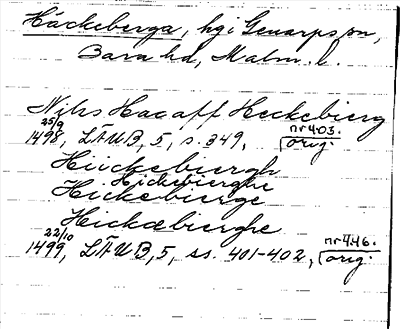 Häckeberga, hg i Genarps sn,
Bara hd, Malm. l.
Niħs Hac aff Heckebierg
25/9 1498, LÄUB, 5, s. 349, nr 403. orig.
Hückebiergh
Hickebierghe
Hickebierge
Hickæbierghe
22/10 1499, LÄUB, 5, ss. 401-402, nr 446. orig.